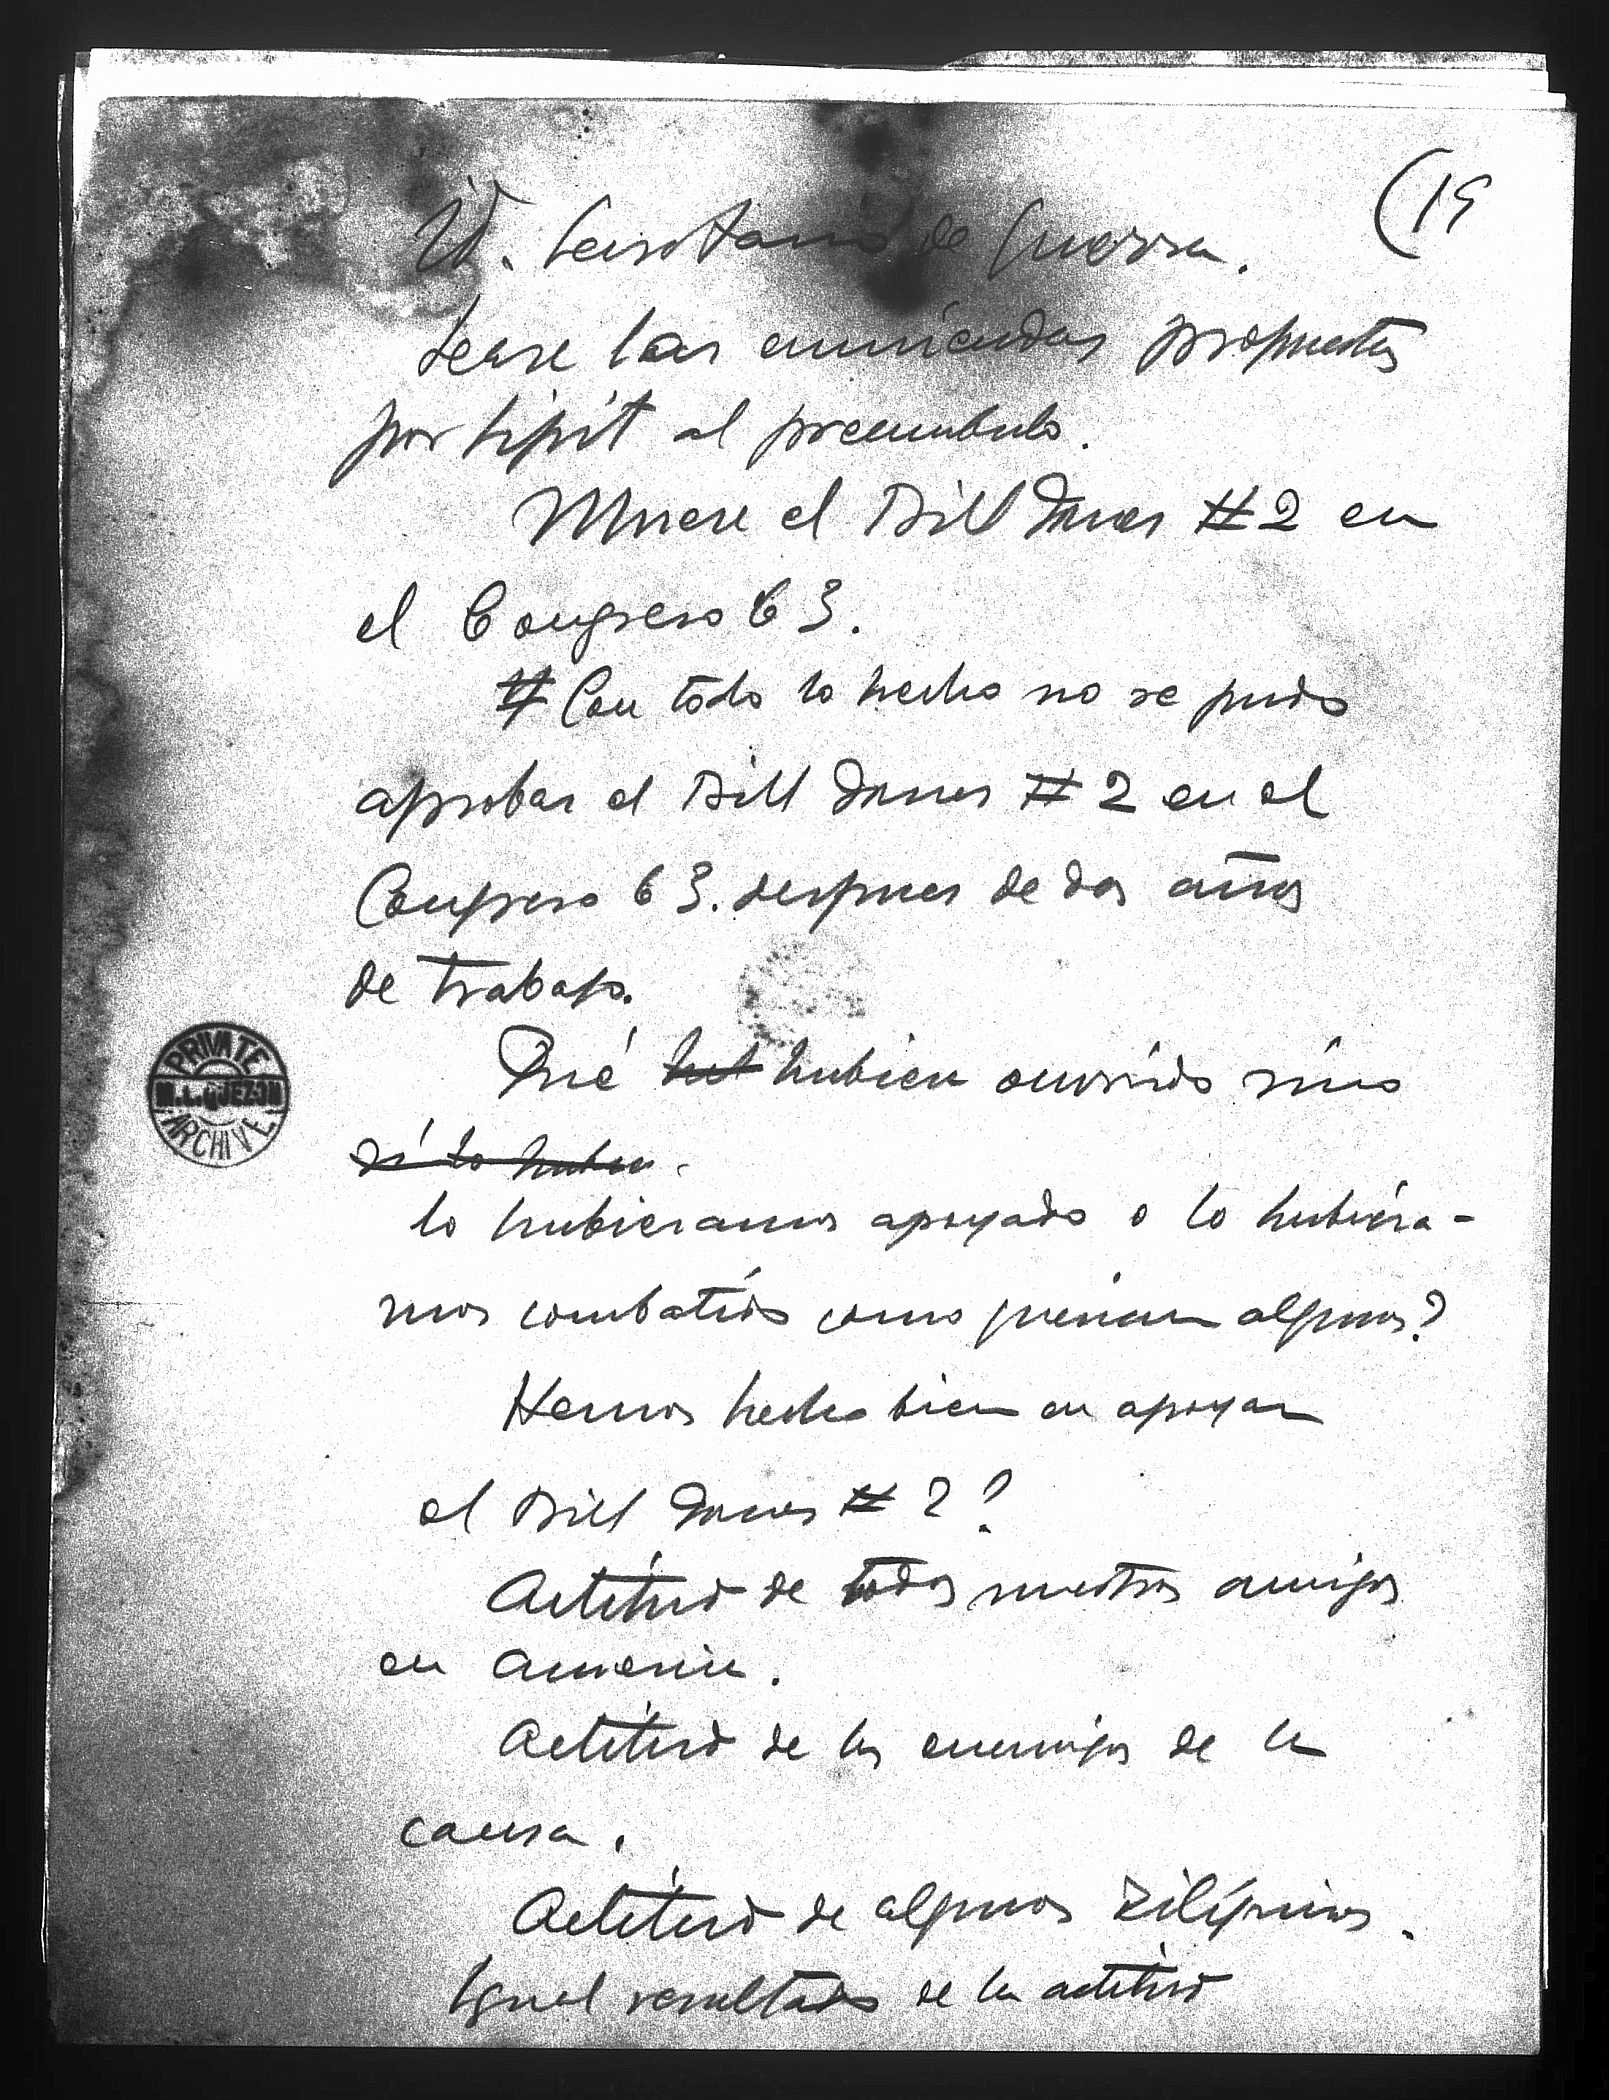 (19
Id. Secretario de Guerra.
Lease las enmiendas propuestas
por Lipit al preambulo.
Muere el Bill Jones #2 en
el Congreso 63.
# Con todo lo hecho no se pudo
aprobar el Bill Jones #2 en el
Congreso 63. despues de dos años
de trabajo.
Qué hub hubiera ocurrido sino
si lo hubie
lo hubieramos apoyado o lo hubiéra-
mos combatido como querian algunos?
Hemos hecho bien en apoyar
el Bill Jones #2?
Actitud de todos nuestros amigos
en America.
Actitud de los enemigos de la
causa.
Actitud de algunos Filipinos.
Igual resultado de la actitud
PRIVATE
M.L.QUEZON
ARCHIVE